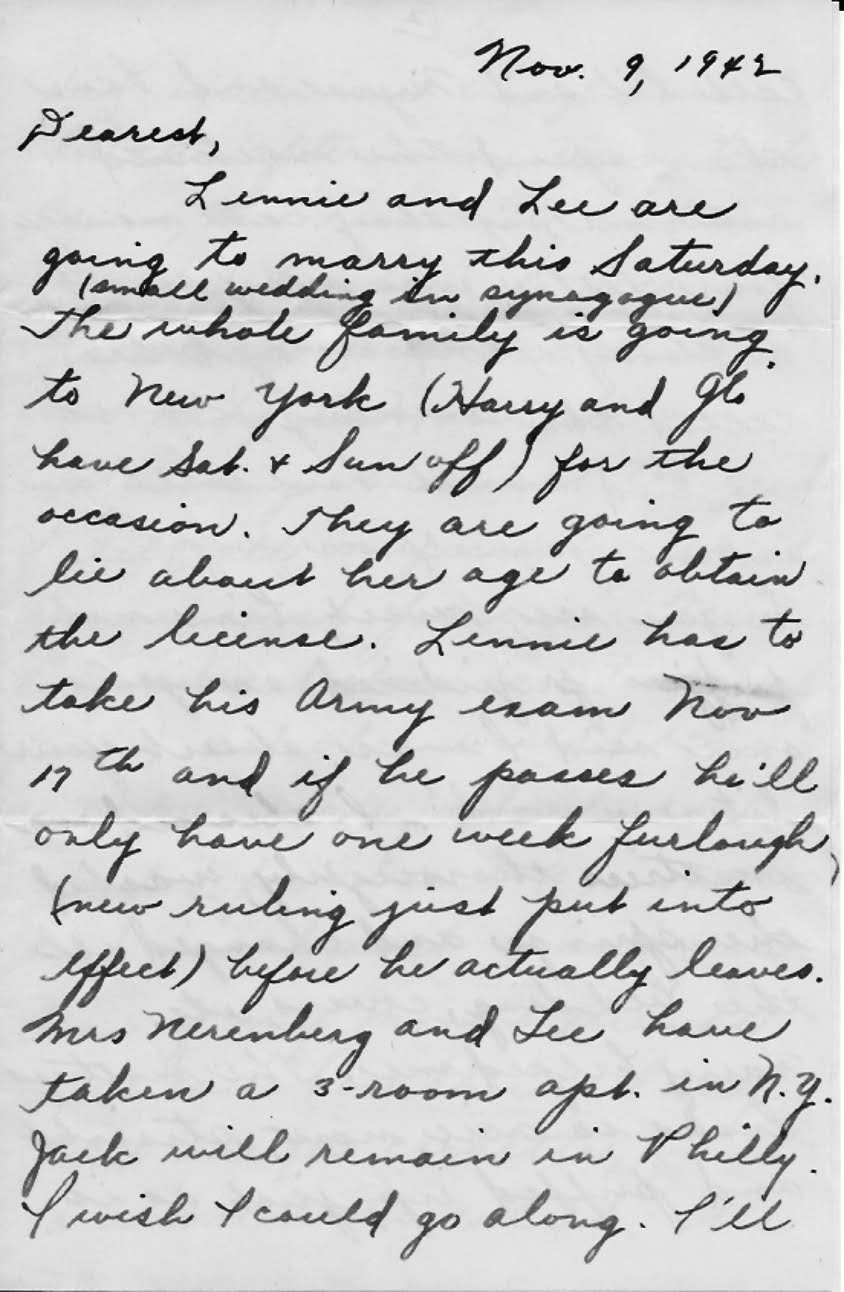 Nov. 9, 1942
Dearest,
Lennie and Lee are
going to marry this Saturday.
(small wedding in synagogue)
The whole family is going
to New York (Harry and Glo
have Sat. & Sun off) for the
occasion. They are going to
lie about her age to obtain
the license. Lennie has to
take his Army exam Nov
17th and if he passes he'll
only have one week furlough
(new ruling just put into
effect) before he actually leaves.
Mrs Nerenberg and Lee have
taken a 3-room apt. in N.Y.
Jack will remain in Philly.
I wish I could go along. I'll